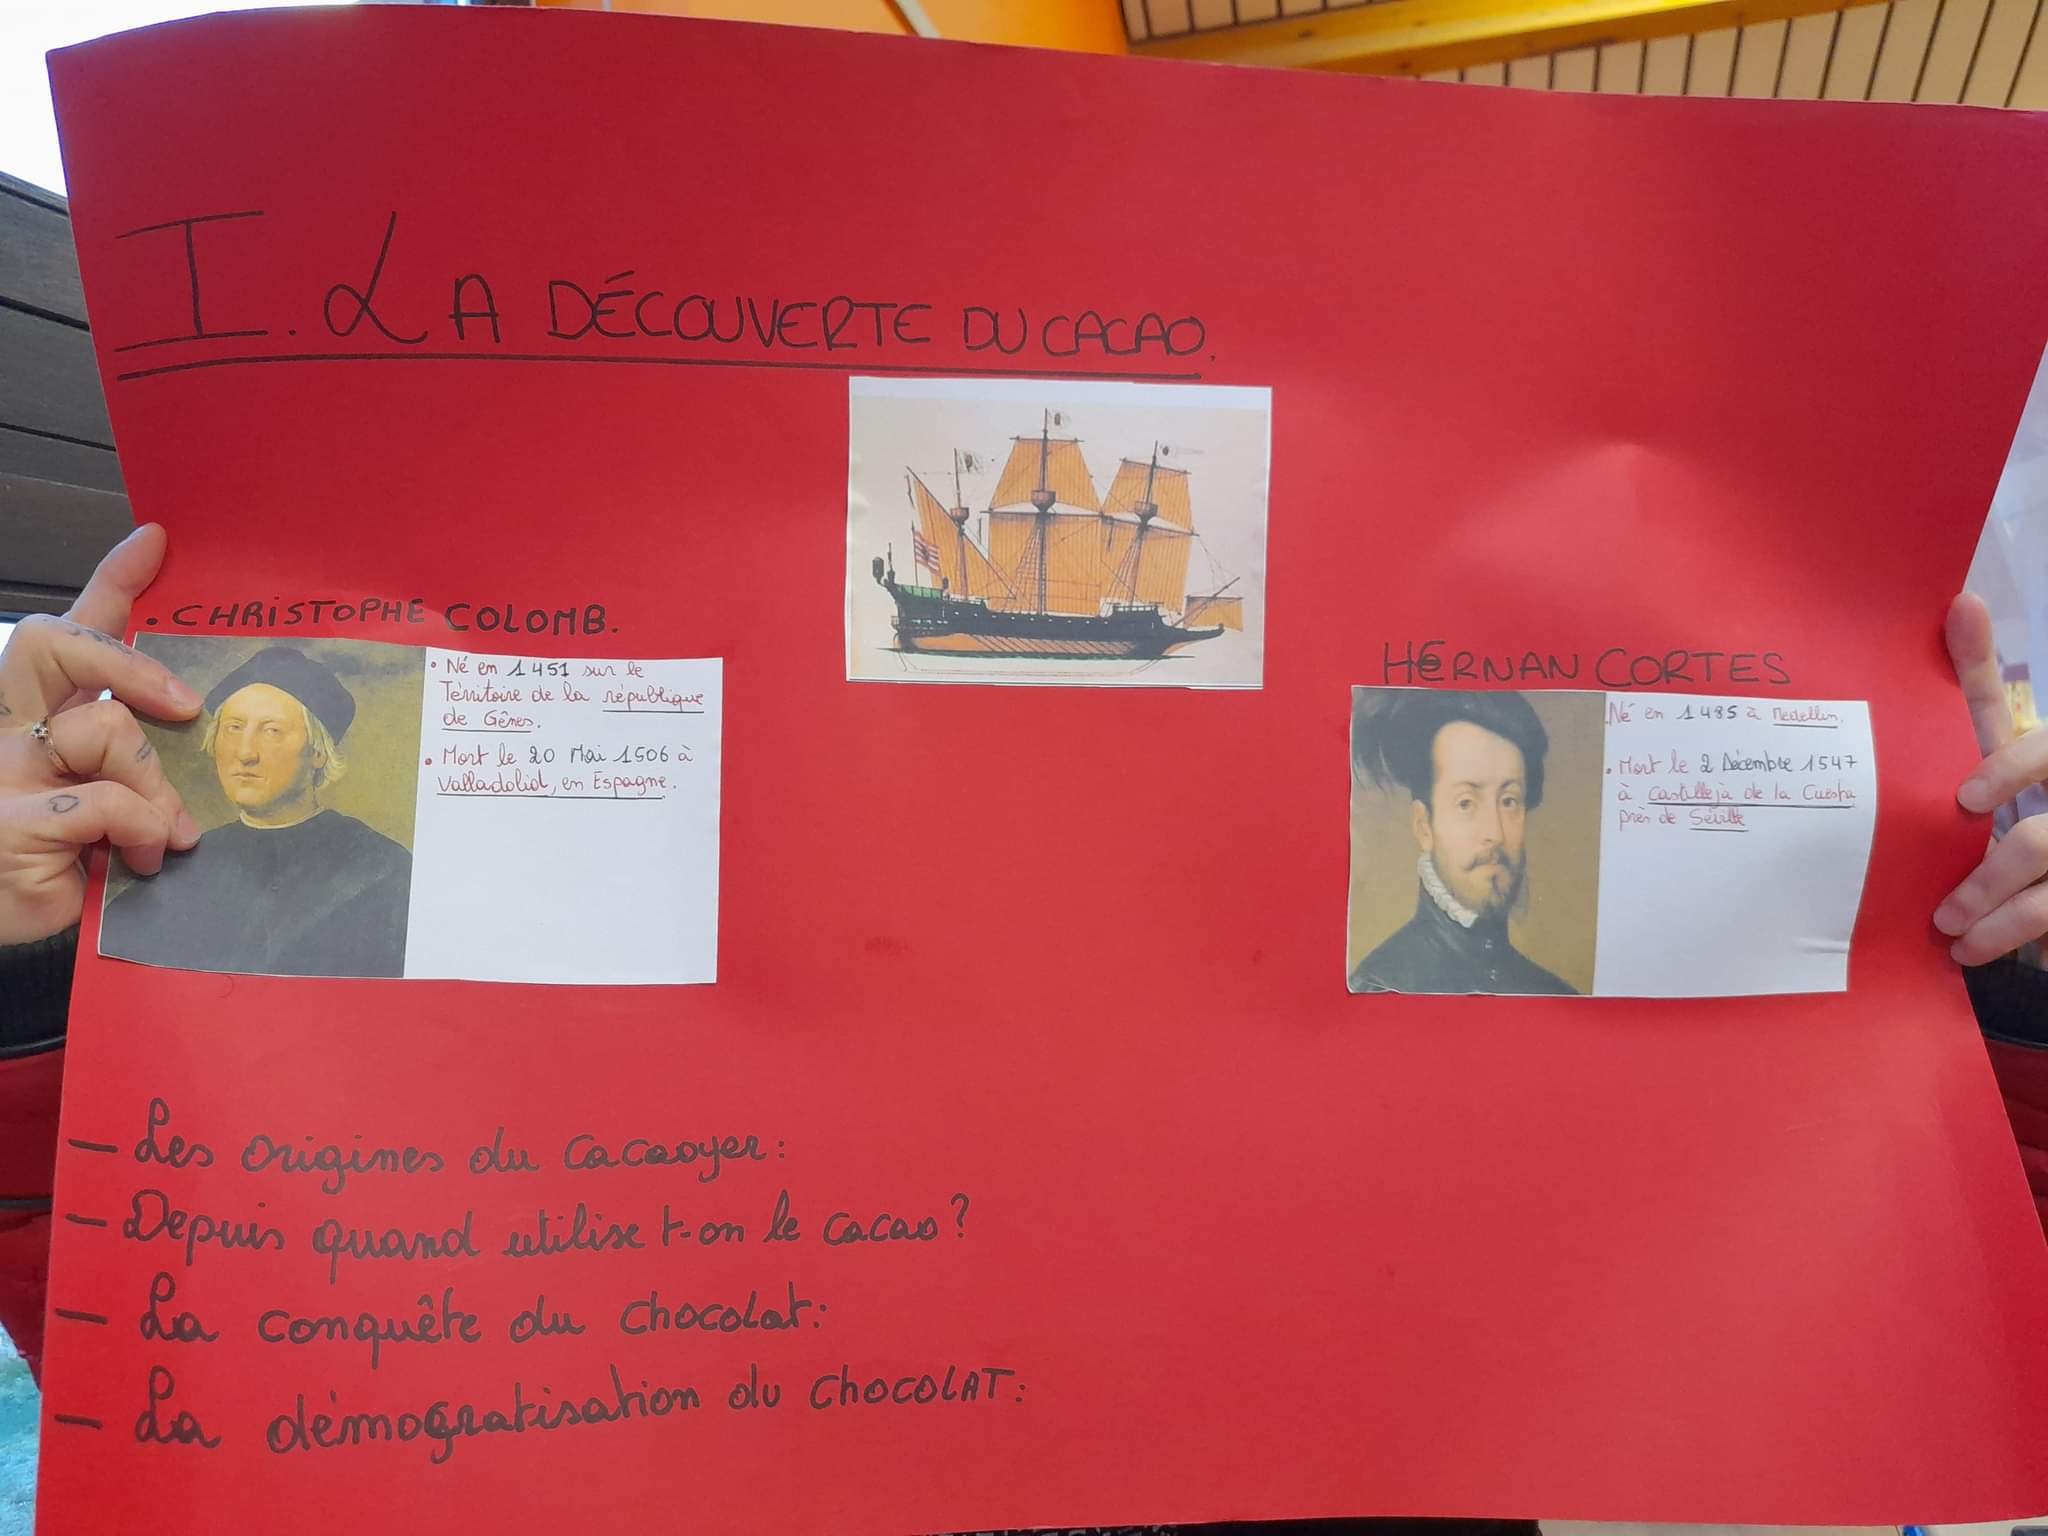 I. LA DÉCOUVERTE DU CACAO.
. CHRISTOPHE COLOMB.
• Né en 1451 sur le
Térritoire de la république
de Gênes.
• Mort le 20 Mai 1506 à
Valladolid, en Espagne.
HERNAN CORTES
. Né en 1485 à Medellin.
• Mort le 2 Décembre 1547
à Castilleja de la Cuesta
près de Séville
- Les origines du Cacaoyer:
- Depuis quand utilise t-on le cacao?
- La conquête du chocolat:
- La démogratisation du CHOCOLAT: